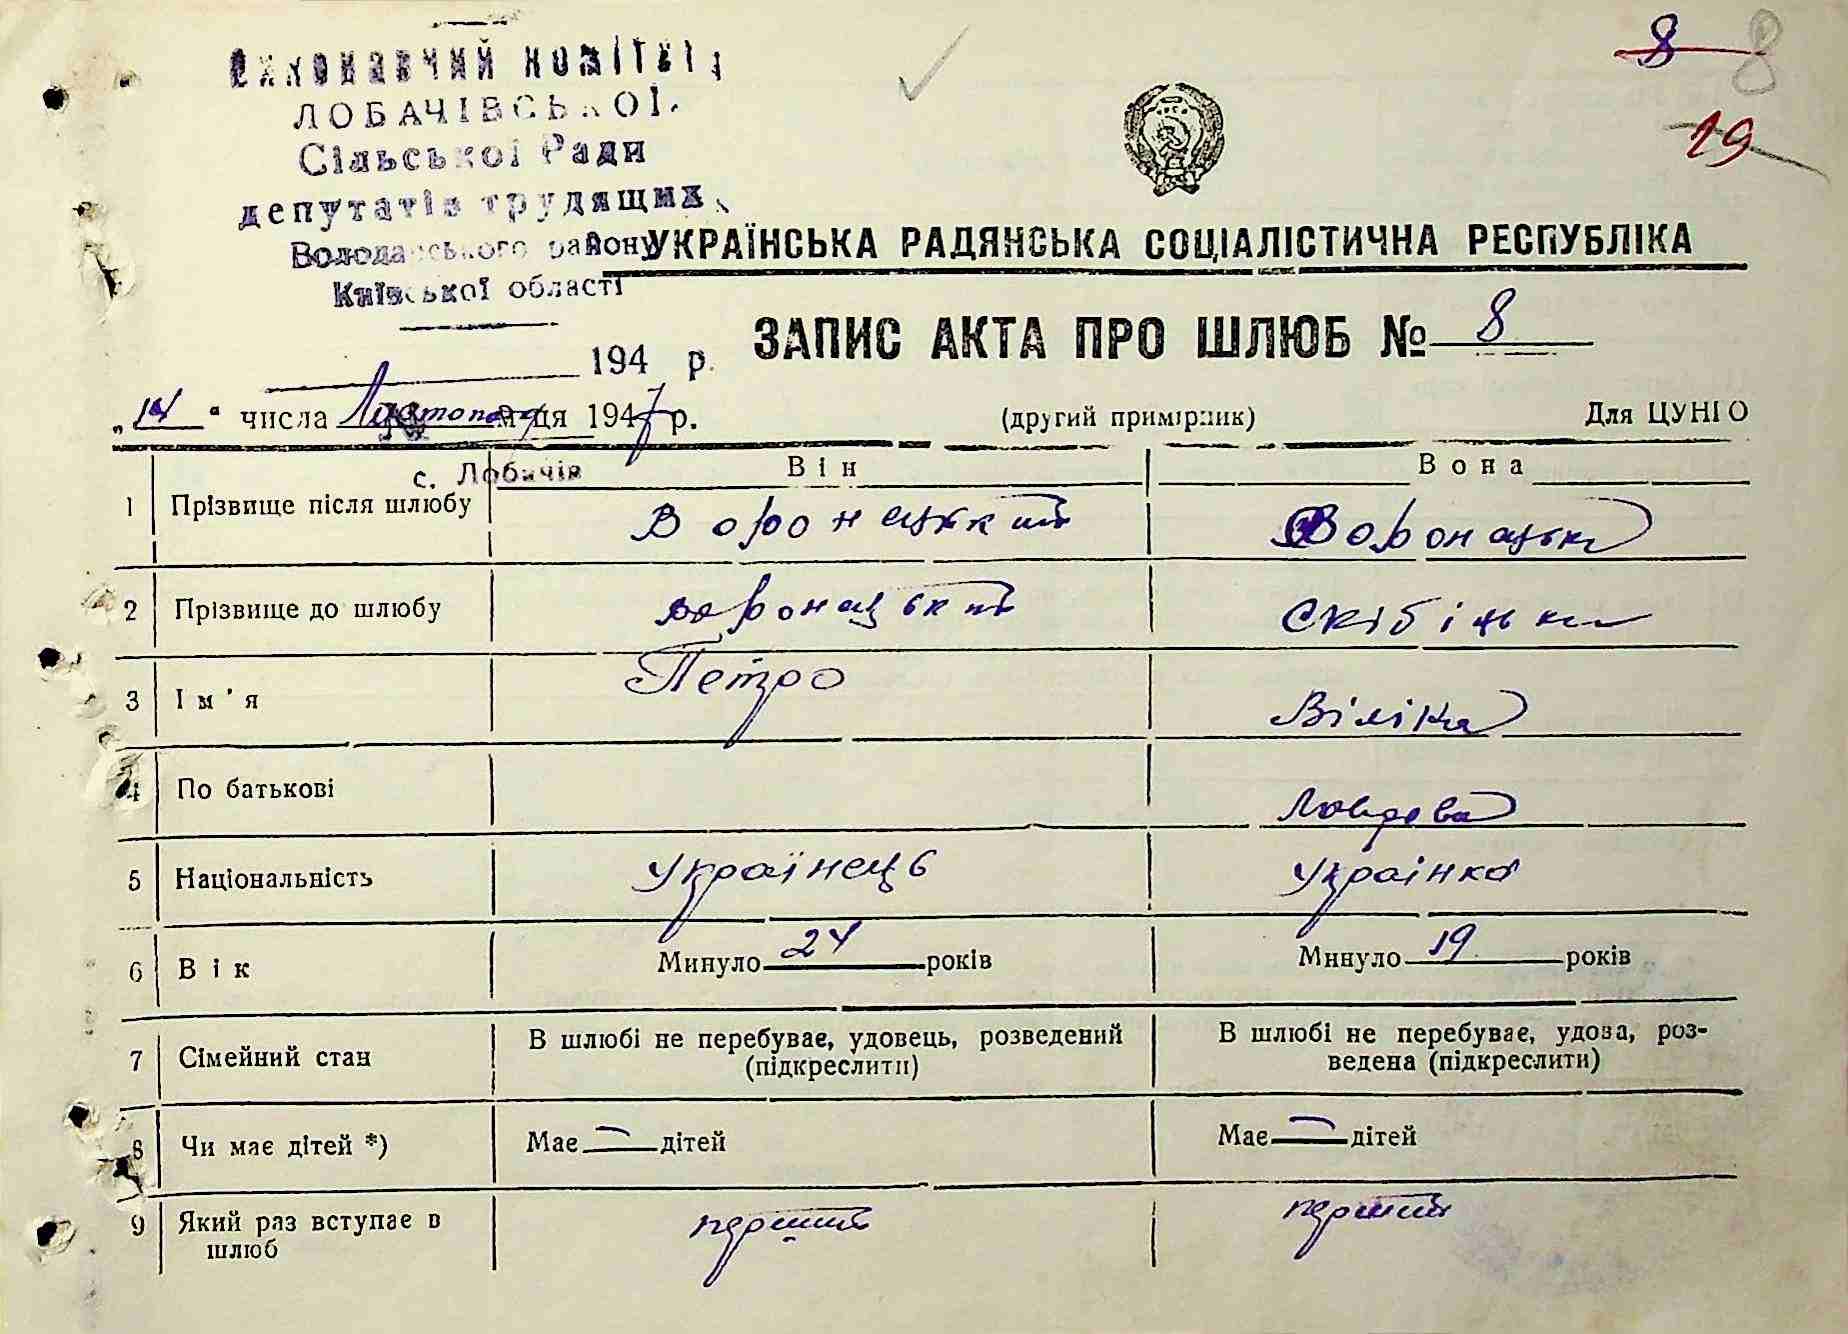 Виконавчий комітет
ЛОБАЧІВСЬКОЇ
Сільської Ради
депутатів трудящих
Володарського району
Київської області
8 8
19
УКРАЇНСЬКА РАДЯНСЬКА СОЦІАЛІСТИЧНА РЕСПУБЛІКА
ЗАПИС АКТА ПРО ШЛЮБ № 8
194 р.
„14“ числа Листопада м-ця 1947 р. (другий примірник) Для ЦУНГО
с. Лобачів
Він Вона
1 Прізвище після шлюбу Воронацький Воронацька
2 Прізвище до шлюбу Воронацький Скібіцька
3 Ім'я Петро Віліка
4 По батькові
5 Національність Українець Украінка
6 Вік Минуло 24 років Минуло 19 років
7 Сімейний стан В шлюбі не перебуває, удовець, розведений (підкреслити) В шлюбі не перебуває, удова, роз-
ведена (підкреслити)
8 Чи має дітей *) Має — дітей Має — дітей
9 Який раз вступає в шлюб перший перший